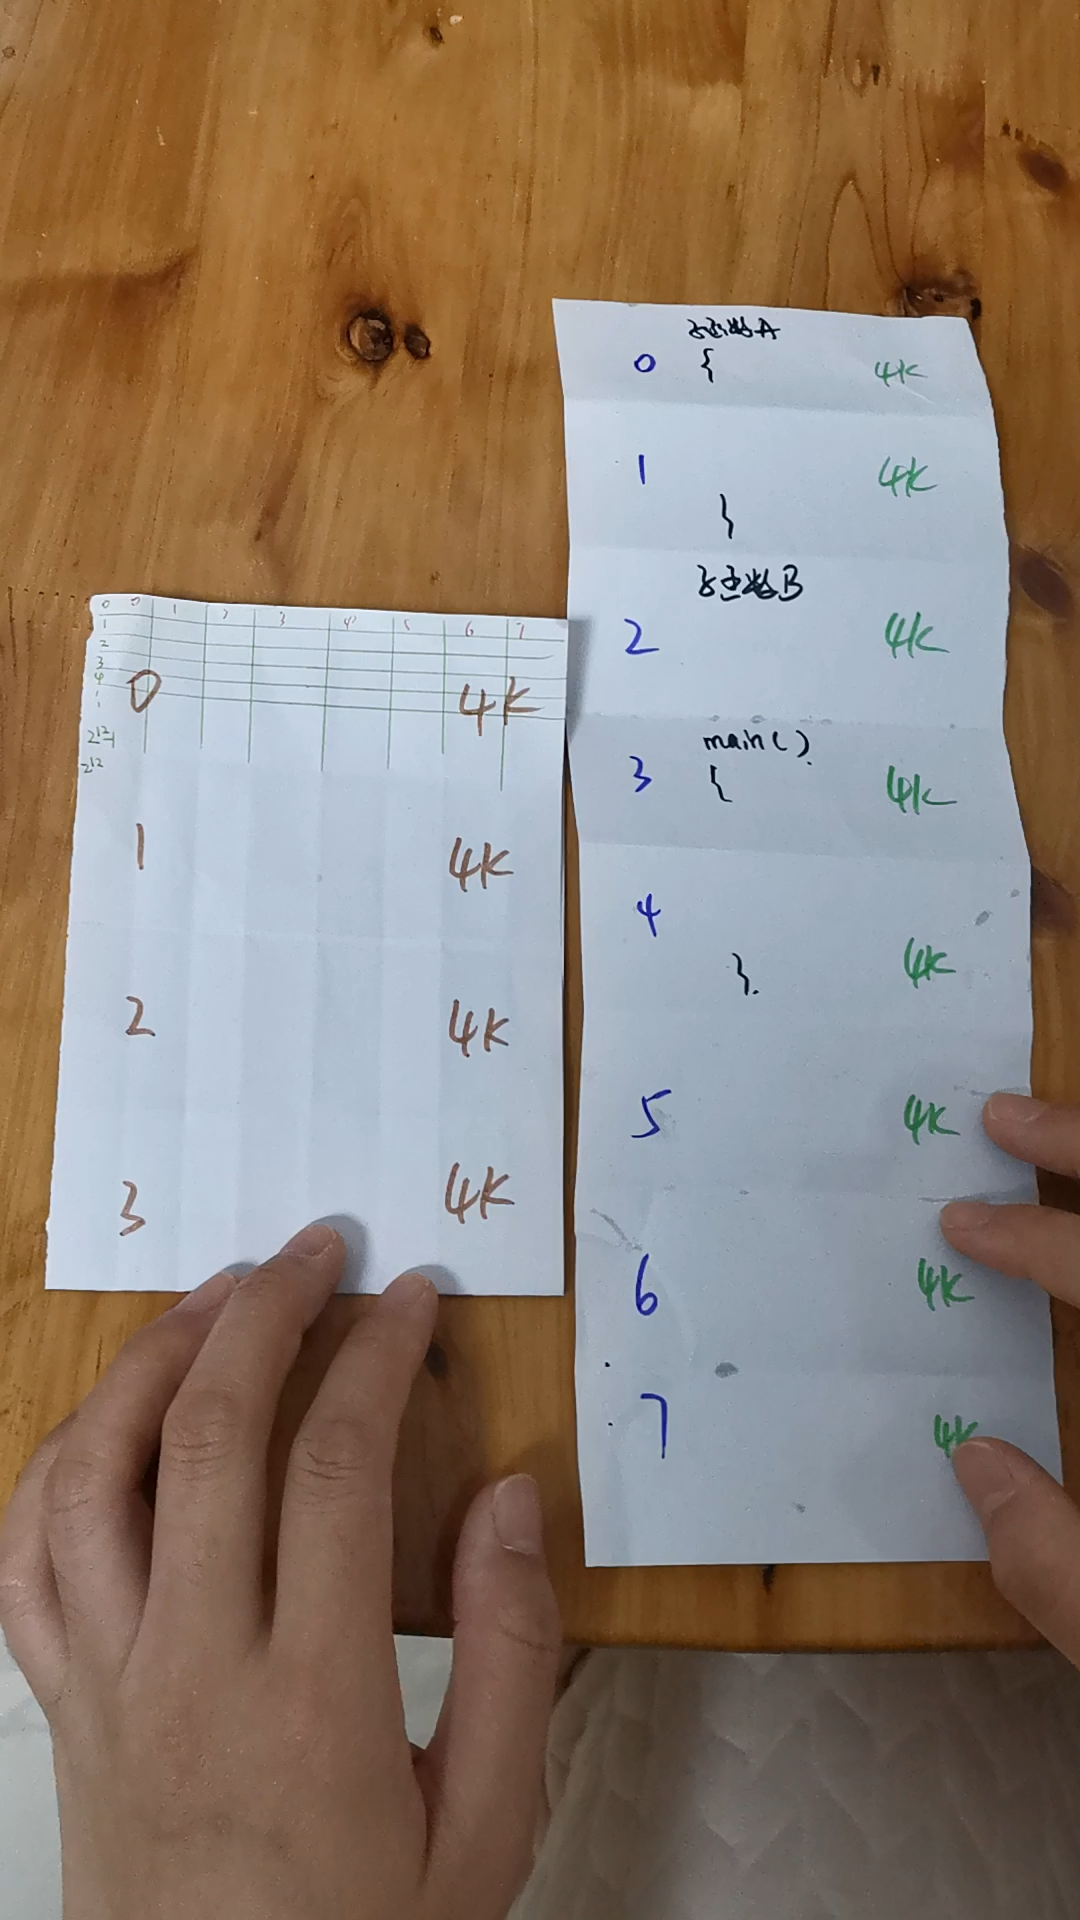 0 0 1 2 3 4 5 6 7
1
2
3
4
1
1
2^12-1
2^12
0 4K
1 4K
2 4K
3 4K
子函数A
0 { 4K
1 4K
}
子函数B
2 4K
main()
3 { 4K
4 4K
}.
5 4K
6 4K
7 4K